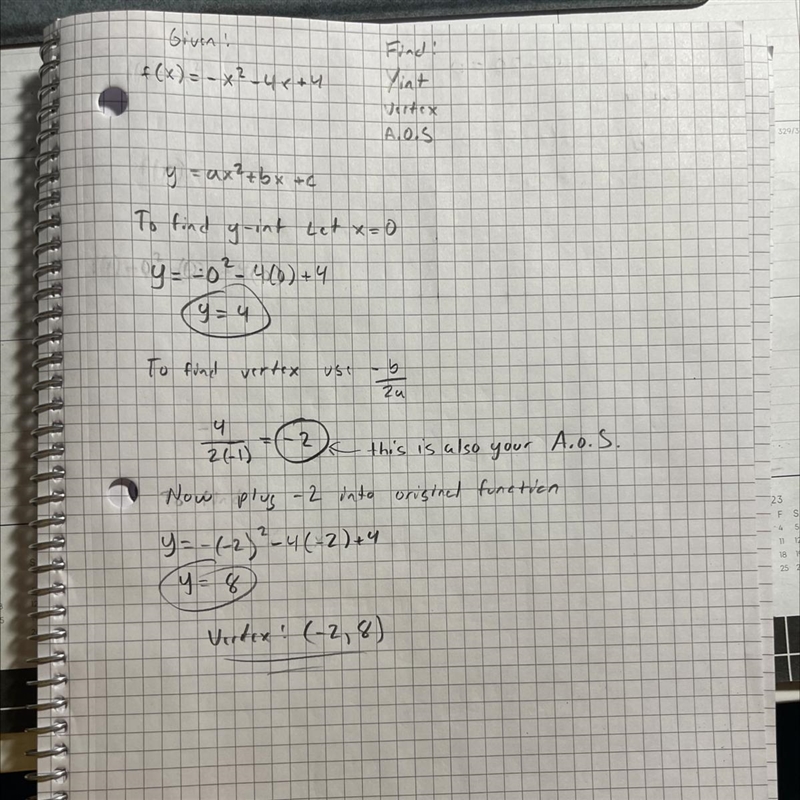 Given:
f(x) = -x² - 4x + 4
Find:
Yint
vertex
A.O.S
y = ax² + bx + c
To find y-int Let x = 0
y = -0² - 4(0) + 4
y = 4
To find vertex use -b/2a
4/2(-1) = -2 ← this is also your A.O.S.
Now plug -2 into original function
y = -(-2)² - 4(-2) + 4
y = 8
Vertex: (-2, 8)
329/3
23
F S
4 5
11 12
18 19
25 2